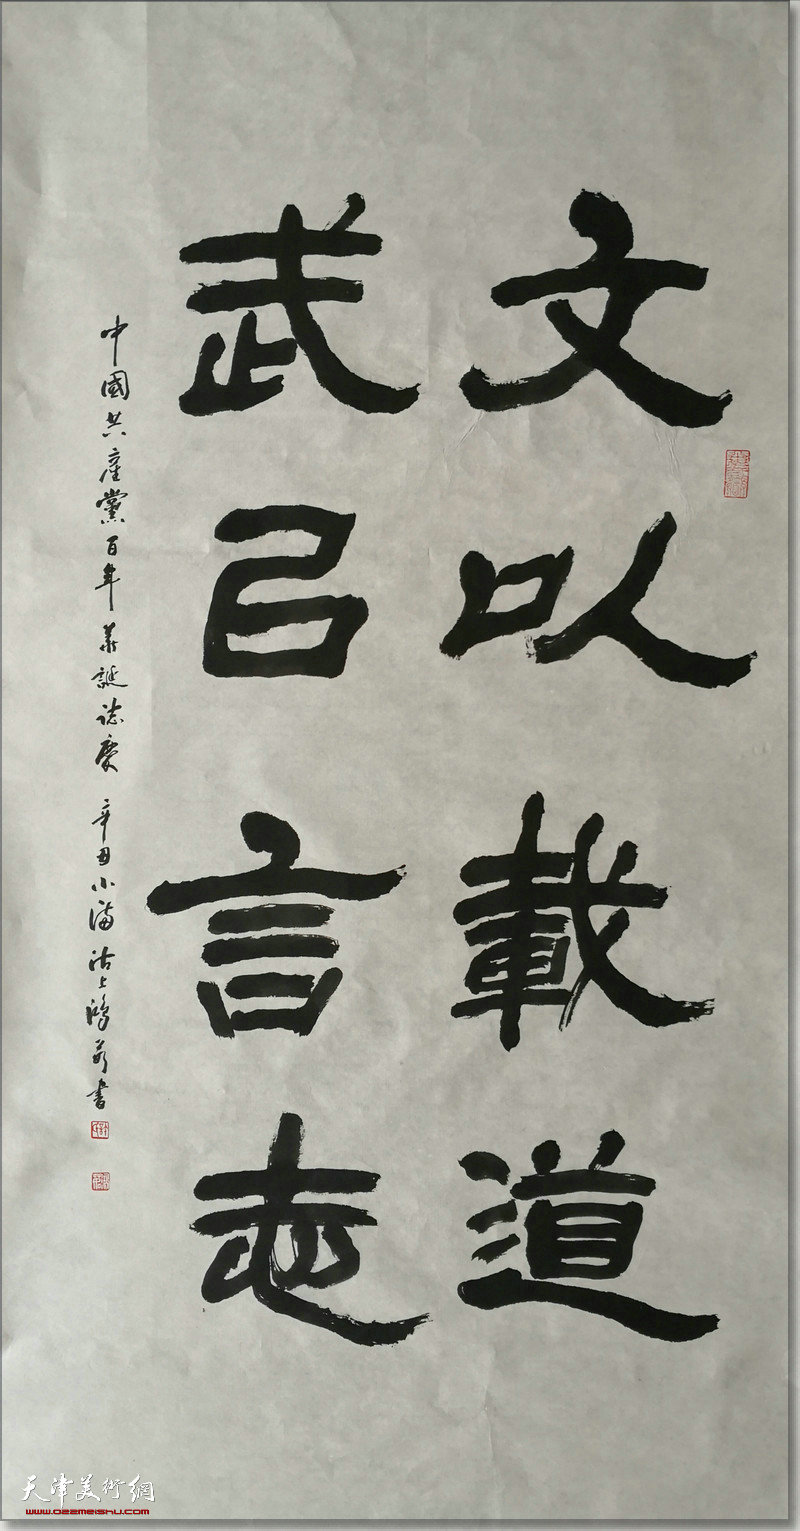 文以載道
武㠯言志
中國共產黨百年華誕誌慶 辛丑小滿沽上鴻彥書
天津美術網
www.022meishu.com